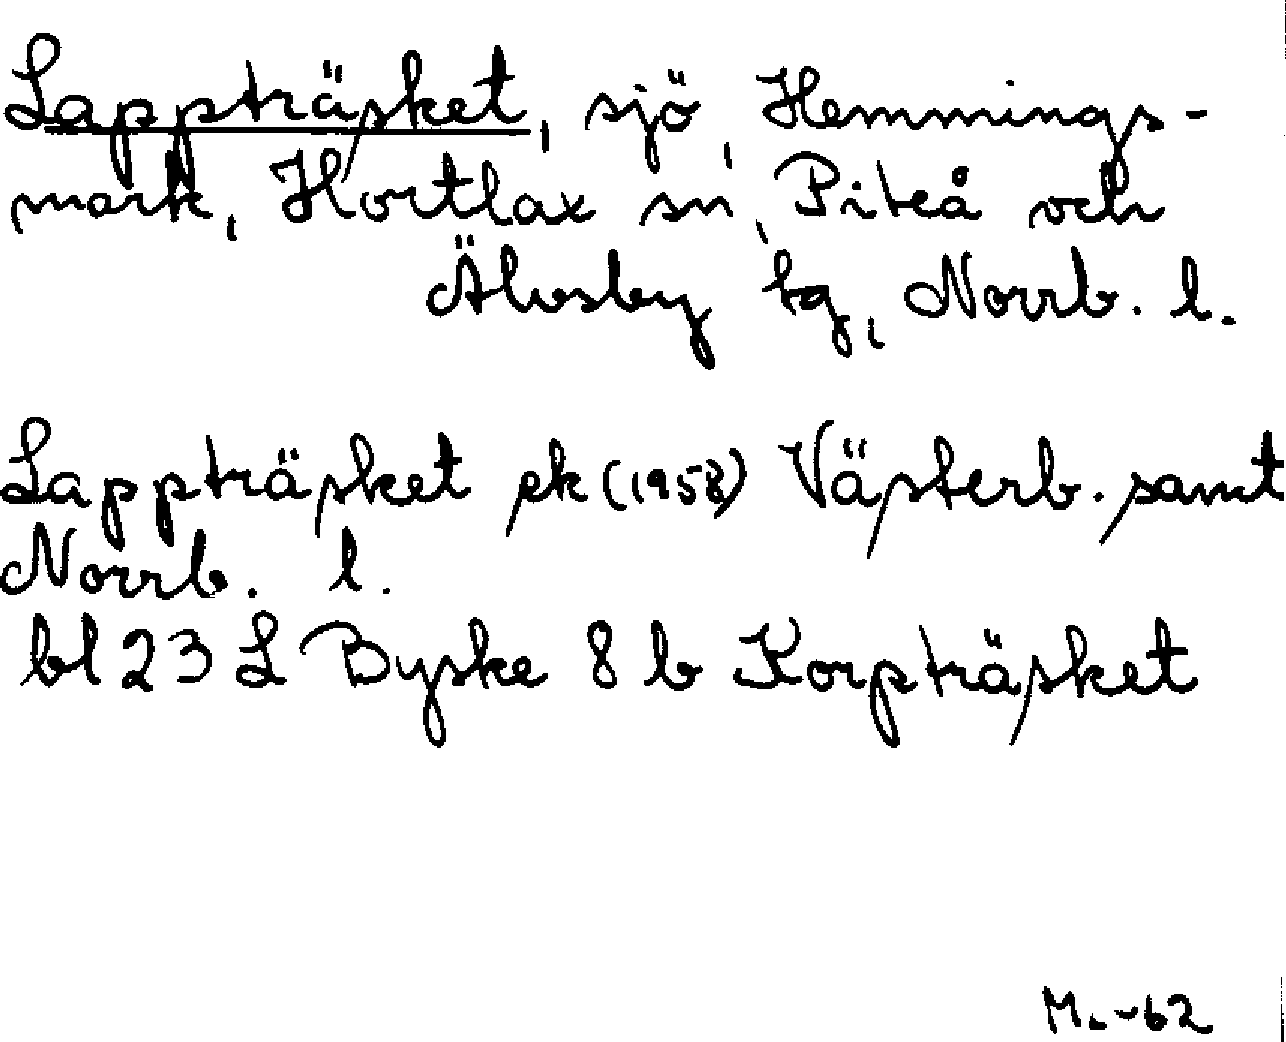 Lappträsket, sjö, Hemmings-
mark, Hortlax sn, Piteå och
Älvsby tg, Norrb. l.
Lappträsket ek (1958) Västerb. samt
Norrb. l.
bl 23 L Byske 8 b Korpträsket